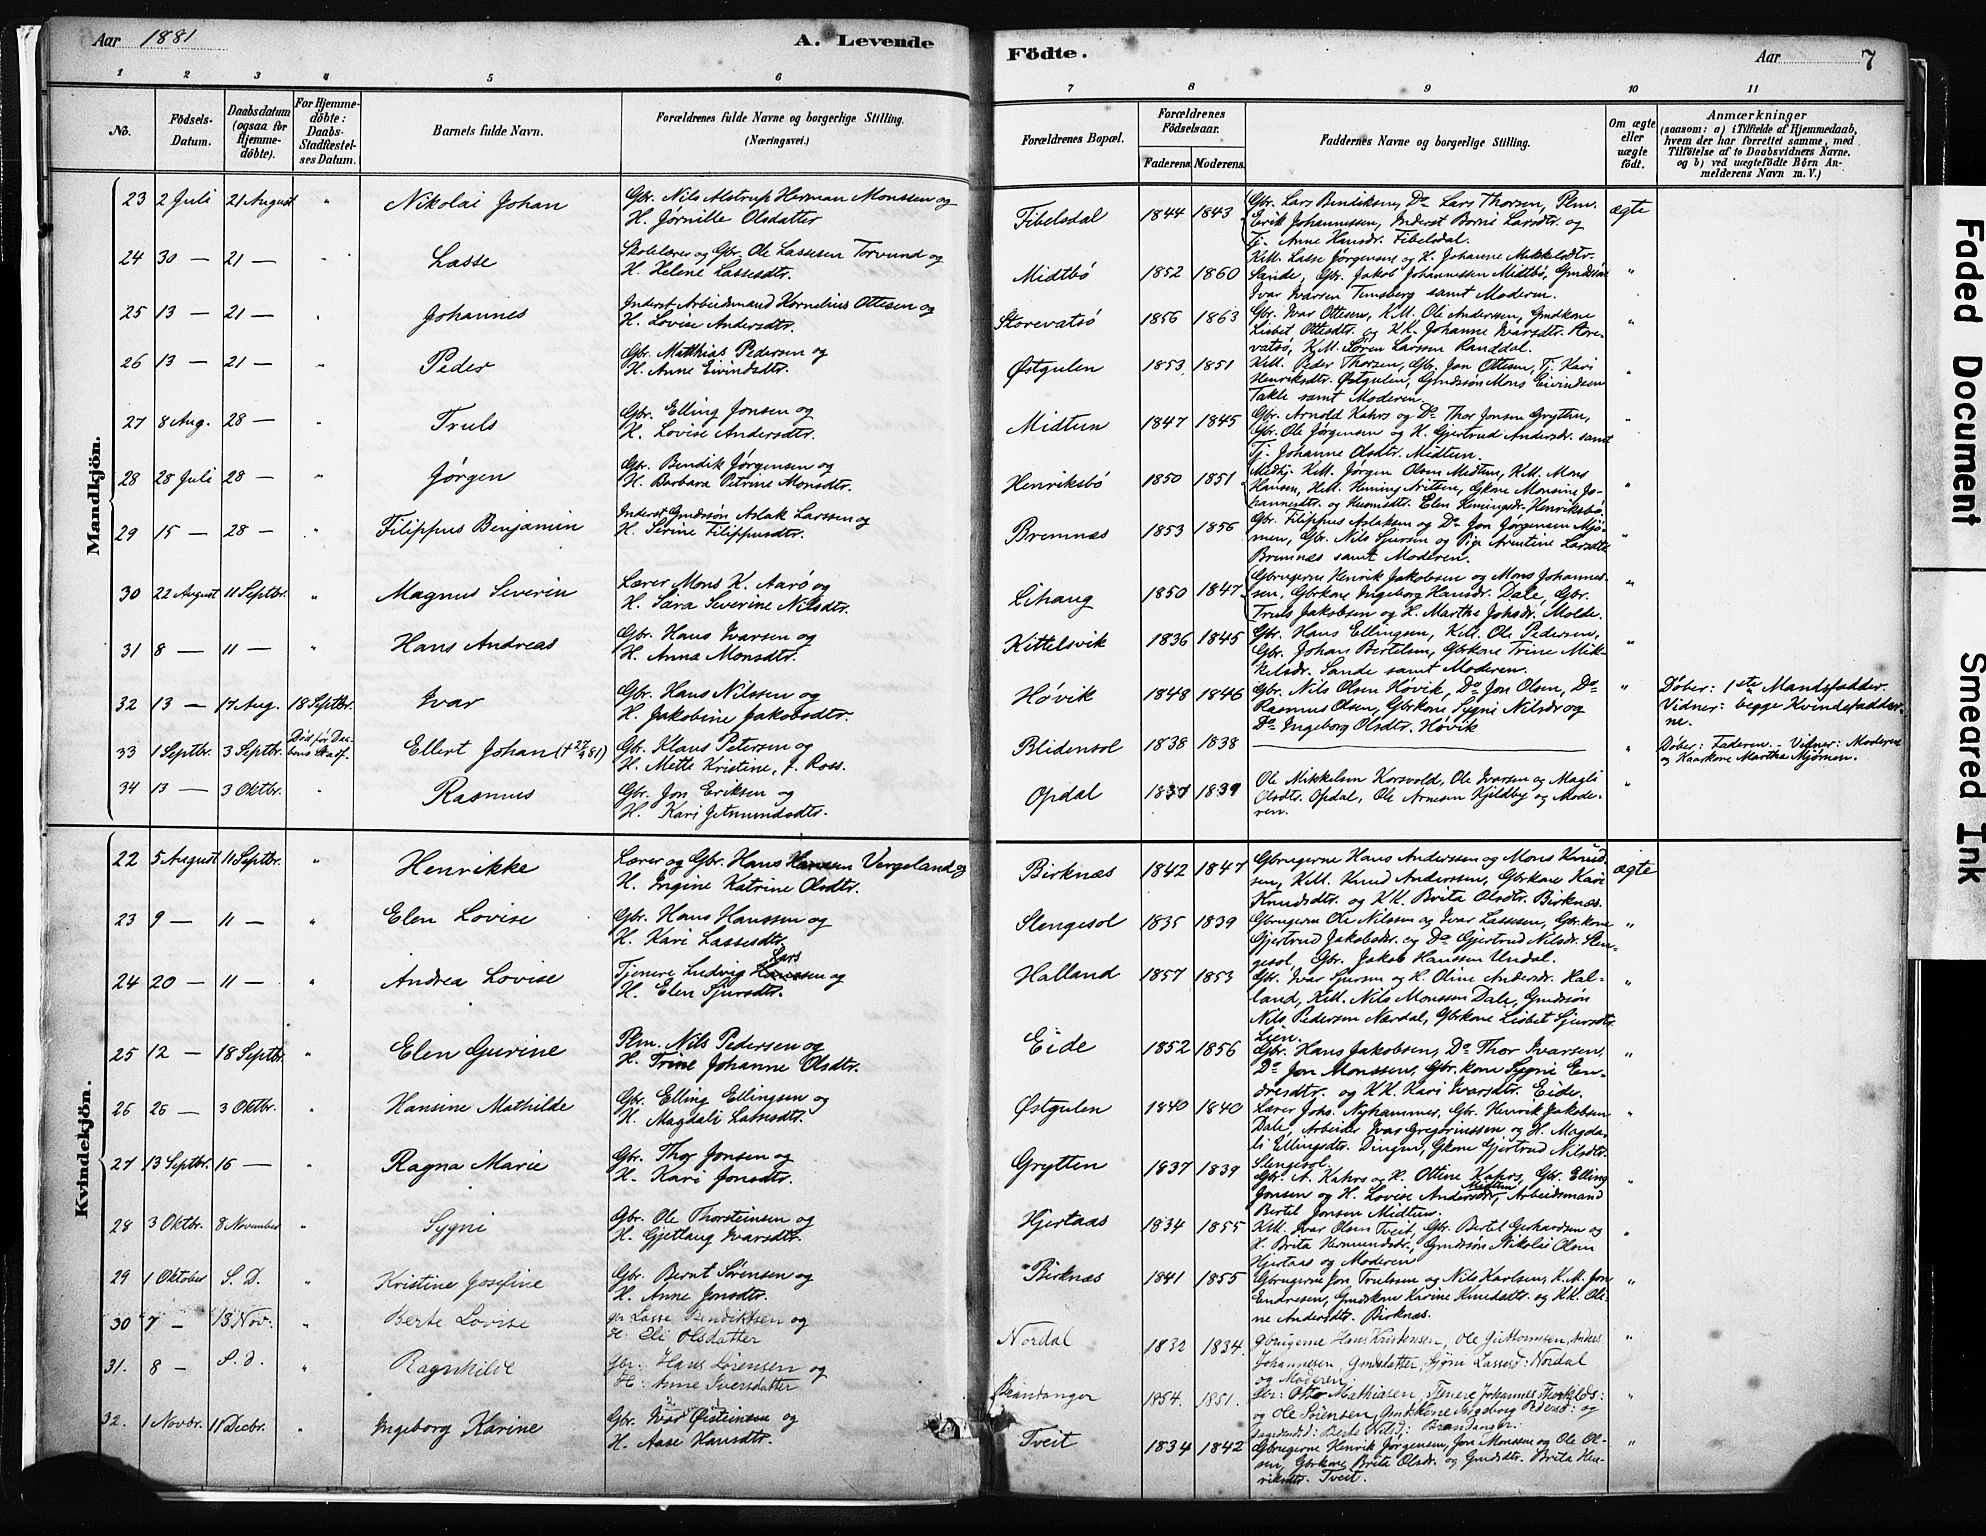 Aar 1881
A. Levende
Födte.
Aar
7
1 2 3 4 5 6 7 8 9 10 11
No.
Födsels-Datum.
Daabsdatum (ogsaa for Hjemmedöbte).
For Hjemmedöbte: Daabs-Stadfæstelses Datum.
Barnets fulde Navn.
Forældrenes fulde Navne og borgerlige Stilling. (Næringsvei.)
Forældrenes Bopæl.
Forældrenes Födselsaar.
Faderens. Moderens.
Faddernes Navne og borgerlige Stilling.
Om ægte eller uægte födt.
Anmærkninger
(saasom: a) i Tilfælde af Hjemmedaab, hvem der har forrettet samme, med Tilföielse af to Daabsvidners Navne, og b) ved uægtefödte Börn Anmelderens Navn m. V.)
Mandkjön.
23 2 Juli 21 August " Nikolai Johan Gbr. Nils Alstrup Herman Monssen og H. Jørnille Olsdatter Fibelsdal 1844 1843 Gbr. Lars Bendiksen, Do Lars Thorsen, Plm. Erik Johannessen, Inderst Børni Larsdtr. og Tj. Anne Hansdr. Fibelsdal. ægte
24 30 — 21 — " Lasse Skolelærer og Gbr. Ole Lassesen Torvund og H. Helene Lassesdtr. Midtbö 1852 1860 KM. Lasse Jørgensen og H. Johanne Mikkeldtr. Sande, Gbr. Jakob Johannessen Midtbö, Gmdssön Ivar Ivarsen Temsberg samt Moderen. "
25 13 — 21 — " Johannes Inderst Arbeidsmand Kornelius Ottesen og H. Lovise Andersdtr. Storevatsö 1856 1863 Gbr. Ivar Ottesen, KM. Ole Anderssen, Gmdkone Lisbet Ottesdtr. og KK. Johanne Ivarsdtr. Storevatsö, KM. Sören Larssen Randdal. "
26 13 — 21 — " Peder Gbr. Matthias Pedersen og H. Anne Eivindsdtr. Østgulen 1853 1851 KM. Peder Thorsen, Gbr. Jon Ottesen, Tj. Kari Henriksdtr. Østgulen, Gmdssön Mons Eivindsen Takle samt Moderen. "
27 8 Aug. 28 — " Truls Gbr. Elling Jonsen og H. Lovise Andersdtr. Midtun 1847 1845 Gbr. Arnold Kahrs og Do Thor Jonsen Grytten, Gbr. Ole Jørgensen og H. Gjertrud Andersdr. samt Tj. Johanne Olsdtr. Midtun. "
28 28 Juli 28 — " Jørgen Gbr. Bendik Jørgensen og H. Barbara Petrine Monsdtr. Henriksbö 1850 1851 Medhj. KM. Jørgen Olsen Midtun, KM. Mons Hansen, KM. Heming Arittsen, Gkone Monsine Johannesdtr. og Husmdtr. Elen Hemingsdr. Henriksbö. "
29 15 — 28 — " Filippus Benjamin Inderst Gmdssön Aslak Larssen og H. Serine Filippusdtr. Bremnæs 1853 1856 Gbr. Filippus Aslaksen og Do Jon Jørgensen Mjömen, Gbr. Nils Sjursen og Pige Arentine Larsdtr. Bremnæs samt Moderen. "
30 22 August 11 Septbr. " Magnus Severin Lærer Mons K. Aarö og H. Sara Severine Nilsdtr. Lihaug 1850 1847 Gbrugerne Henrik Jakobsen og Mons Johannessen, Gbrkone Ingeborg Hansdr. Dale, Gbr. Truls Jakobsen og H. Martha Johsdr. Molde. "
31 8 — 11 — " Hans Andreas Gbr. Hans Ivarsen og H. Anna Monsdtr. Kittelsvik 1836 1845 Gbr. Hans Ellingsen, KM. Ole Pedersen, Gbr. Johan Bertelsen, Gbrkone Trine Mikkelsdr. Sande samt Moderen. "
32 13 — 17 Aug. 18 Septbr. Ivar Gbr. Hans Nilssen og H. Jakobine Jakobsdtr. Høvik 1848 1846 Gbr. Nils Olsen Høvik, Do Jon Olsen, Do Rasmus Olsen, Gbrkone Sygni Nilsdr og Do Ingeborg Olsdtr. Høvik " Døber: 1ste Mandsfadder. Vidner: begge Kvindefadderne.
33 1 Septbr. 3 Septbr. Död før Daabens Stadf. Ellert Johan († 27/9 81) Gbr. Klaus Petersen og H. Mette Kristine, f. Ross. Blidensol 1838 1838 — " Døber: Faderen. — Vidner: Moderen og Kaarkone Martha Mjömen.
34 13 — 3 Oktbr. " Rasmus Gbr. Jon Eriksen og H. Kari Jetmundsdtr. Opdal 1837 1839 Ole Mikkelsen Korsvold, Ole Ivarsen og Magli Olsdtr. Opdal, Ole Arnesen Kjeldby og Moderen. "
Kvindekjön.
22 5 August 11 Septbr. " Henrikke Lærer og Gbr. Hans Hansen Vergeland og H. Engine Katrine Olsdtr. Birknæs 1842 1847 Gbrugerne Hans Anderssen og Mons Knudsen, KM. Knud Anderssen, Gbrkone Kari Knudsdtr. og KK. Brita Olsdtr. Birknæs. ægte
23 9 — 11 — " Elen Lovise Gbr. Hans Hanssen og H. Kari Lassesdtr. Slengesol 1835 1839 Gbrugerne Ole Nilssen og Ivar Lassesen, Gbr.kone Gjertrud Jakobsdr. og Do Gjertrud Nilsdr. Slengesol, Gbr. Jakob Hanssen Undal. "
24 20 — 11 — " Andrea Lovise Tjenere Ludvig Hanssen Lars og H. Elen Sjursdtr. Halland 1857 1853 Gbr. Ivar Sjursen og H. Oline Andersdr. Halland, KM. Nils Monssen Dale, Gmdssön Nils Pedersen Nærdal, Gbrkone Lisbet Sjursdtr. Lien. "
25 12 — 18 Septbr. " Elen Gurine Plm. Nils Pedersen og H. Trine Johanne Olsdtr. Eide 1852 1856 Gbr. Hans Jakobsen, Do Thor Ivarsen, Do Jon Monssen, Gbr.kone Sygni Endresdtr. og KK. Kari Ivarsdtr. Eide. "
26 26 — 3 Oktbr. " Hansine Mathilde Gbr. Elling Ellingsen og H. Magdali Lassesdtr. Østgulen 1840 1840 Lærer Johs. Nyhammer, Gbr. Henrik Jakobsen Dale, Arbeider Ivar Gregoriussen og H. Magdali Ellingsdtr. Dingen, Gkone Gjertrud Nilsdtr. Slengesol. "
27 13 Septbr. 16 — " Ragna Marie Gbr. Thor Jonsen og H. Kari Jonsdtr. Grytten 1837 1839 Gbr. A. Kahrs og H. Ottine Kahrs, Gbr. Elling Jonsen og H. Lovise Andersdr, Midtun Arbeidsmand Bertel Jonsen Midtun. "
28 3 Oktbr. 8 November " Sygni Gbr. Ole Thorsteinsen og H. Gjetlaug Ivarsdtr. Hjertaas 1834 1855 KM. Ivar Olsen Tveit, Gbr. Bertil Gerhardsen og H. Brita Hermundsdr., Gmdssön Nikolai Olsen Hjertaas og Moderen "
29 1 Oktober S. D. " Kristine Josefine Gbr. Bernt Sørensen og H. Anne Jonsdtr. Birknæs 1841 1855 Gbrugerne Jon Trulssen og Nils Karlsen, K.M. Jon Endresen, Gmdskone Karine Knudsdtr. og KK. Oline Andersdtr. Birknæs. "
30 7 — 13 Nov: " Berte Lovise gr Lasse Bendiktsen og H: Eli Olsdatter Nordal 1832 1834. gbrugerne Hans Kristensen, Ole Guttormsen, Anders Johannesen, Gmdsdatter Sygni Lassesd: Nordal og Moderen. "
31. 8 — S. d. " Ragnhilde Gbr. Hans Sørensen og H: Anne Iversdatter Brandanger 1854. 1851. Gbr: Otto Mathiasen, Tjenere Johannes Thorkilds: og Ole Sörensen, Gmdskone Ingeborg Pedersd: og Berte Nilsd: Brandanger. "
32. 1 Novbr. 11 Decbr. " Ingeborg Karine Gbr. Ivar Øisteinsen og H. Aase Hansdtr. Tveit 1834 1842 Gbrugerne Henrik Jørgensen, Jon Monssen og Ole Olsen, Gbrkone Brita Olsdr. og Gmdsdtr. Brita Henriksdtr. Tveit. "
Faded Document
Smeared Ink